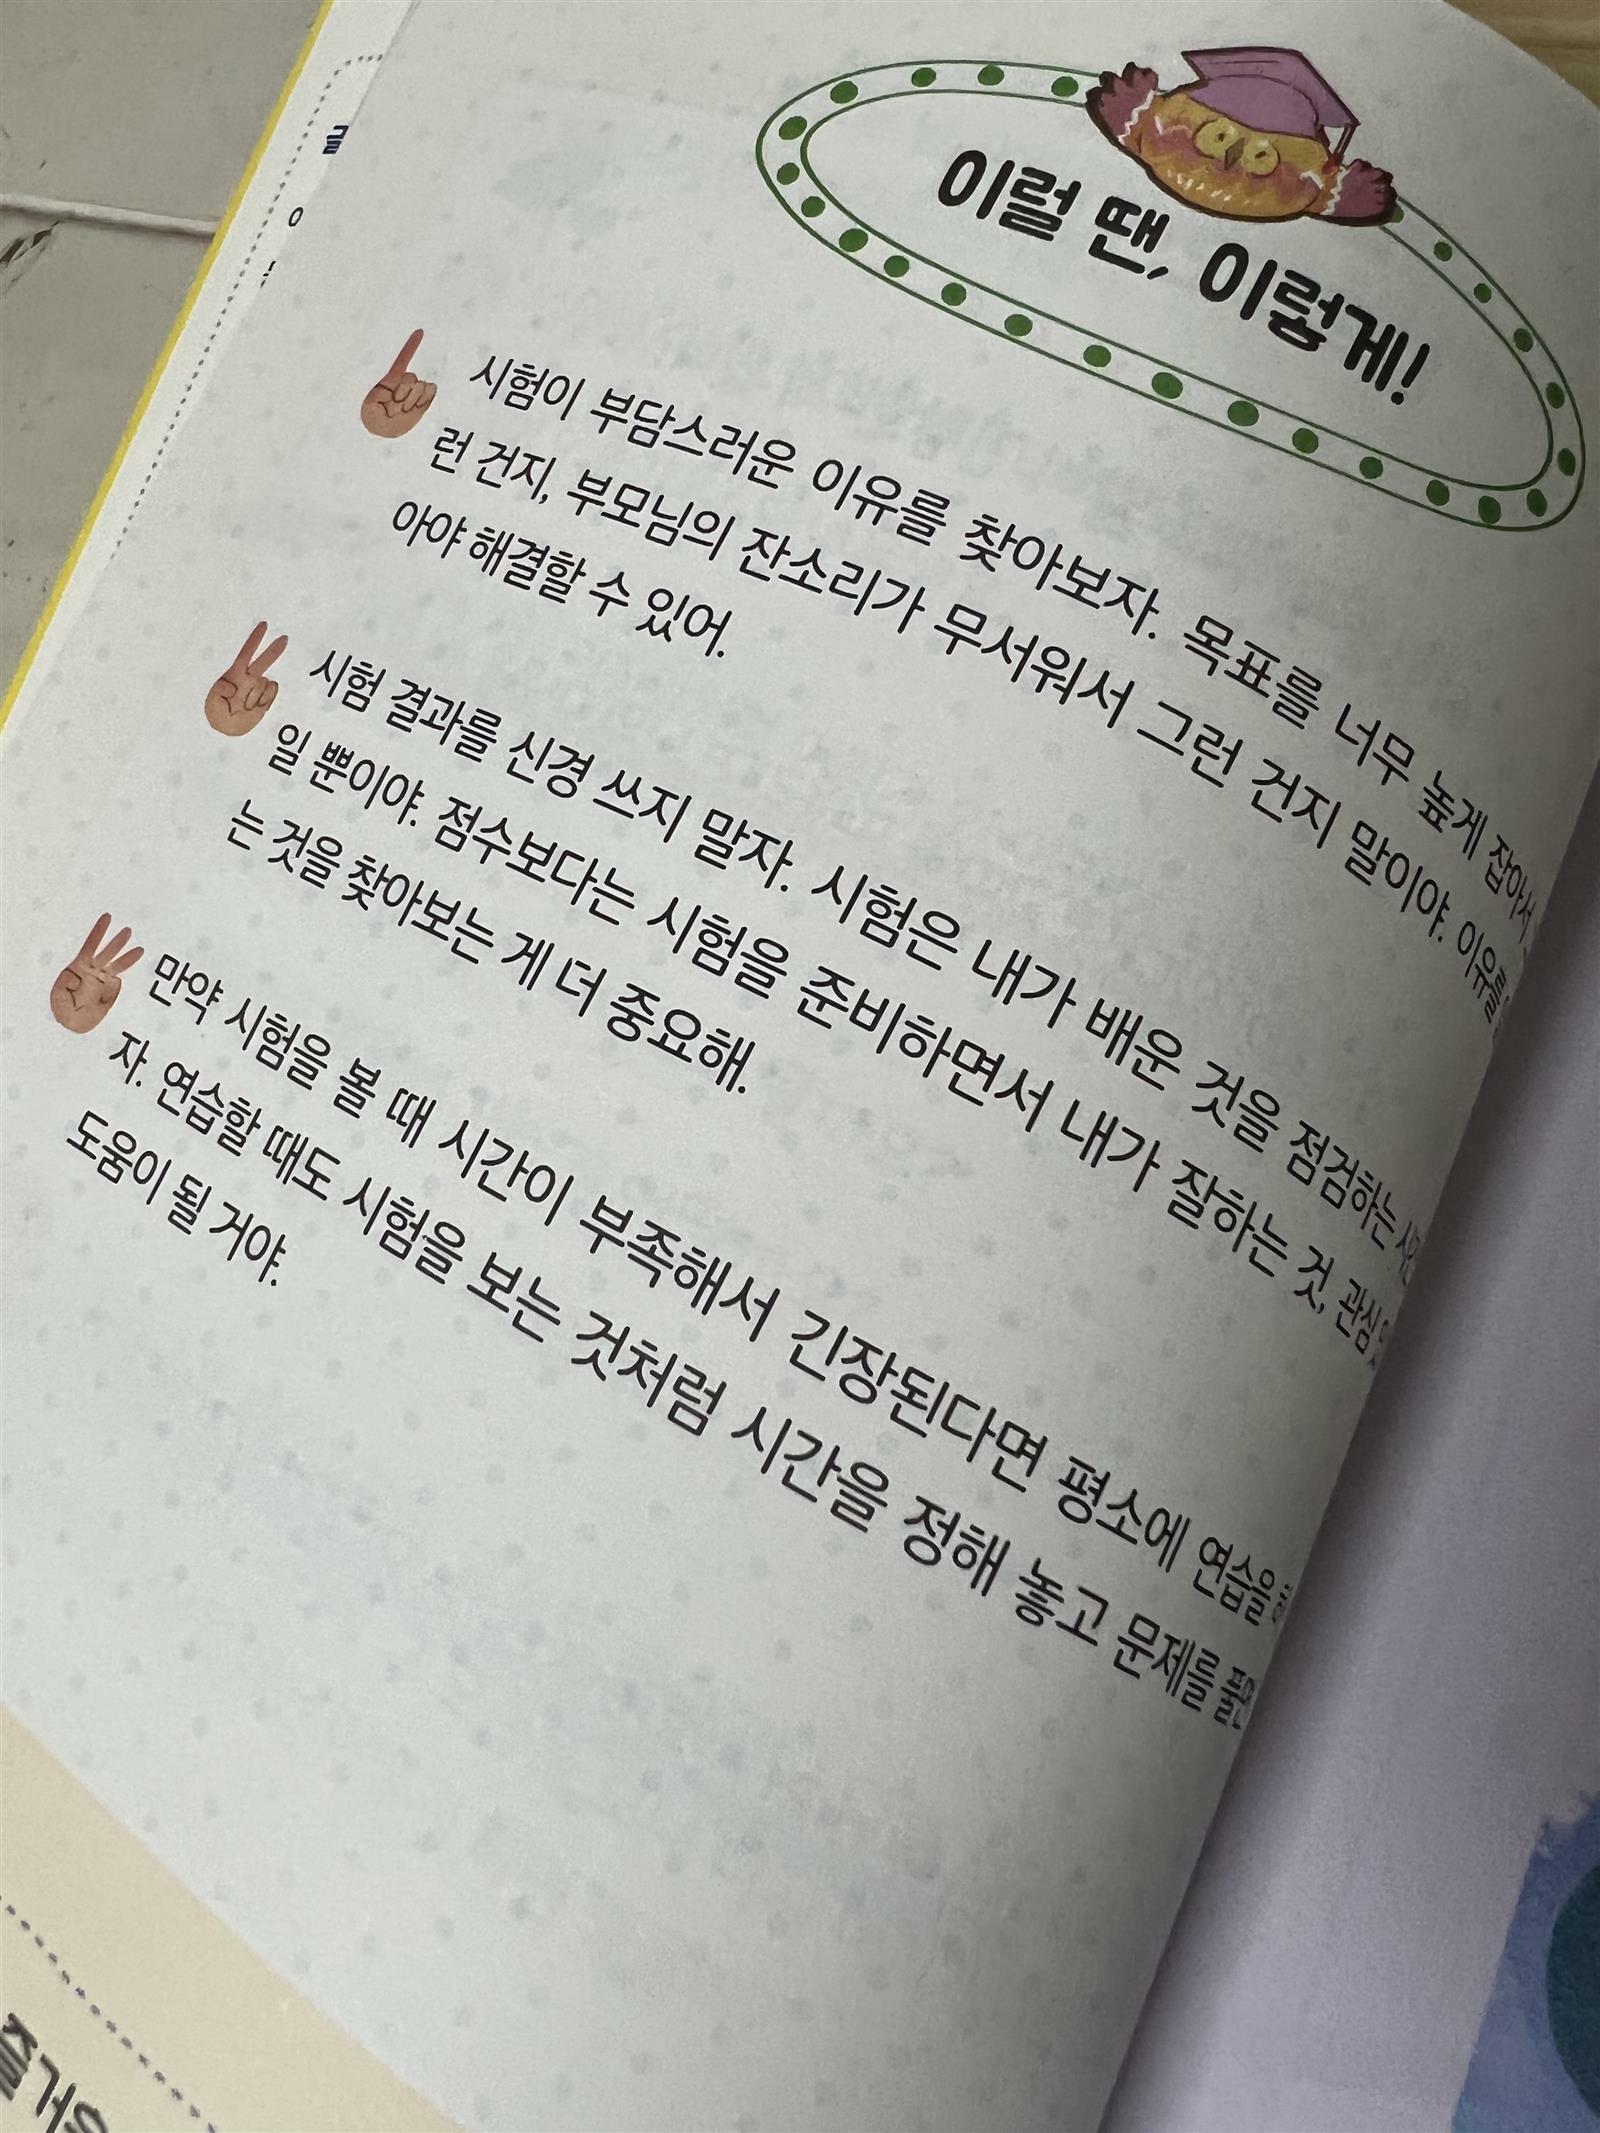 이럴 땐, 이렇게!
시험이 부담스러운 이유를 찾아보자. 목표를 너무 높게 잡아서
런 건지, 부모님의 잔소리가 무서워서 그런 건지 말이야. 이유를
아야 해결할 수 있어.
시험 결과를 신경 쓰지 말자. 시험은 내가 배운 것을 점검하는
일 뿐이야. 점수보다는 시험을 준비하면서 내가 잘하는 것, 관심
는 것을 찾아보는 게 더 중요해.
만약 시험을 볼 때 시간이 부족해서 긴장된다면 평소에 연습을
자. 연습할 때도 시험을 보는 것처럼 시간을 정해 놓고 문제를 풀면
도움이 될 거야.
즐거운